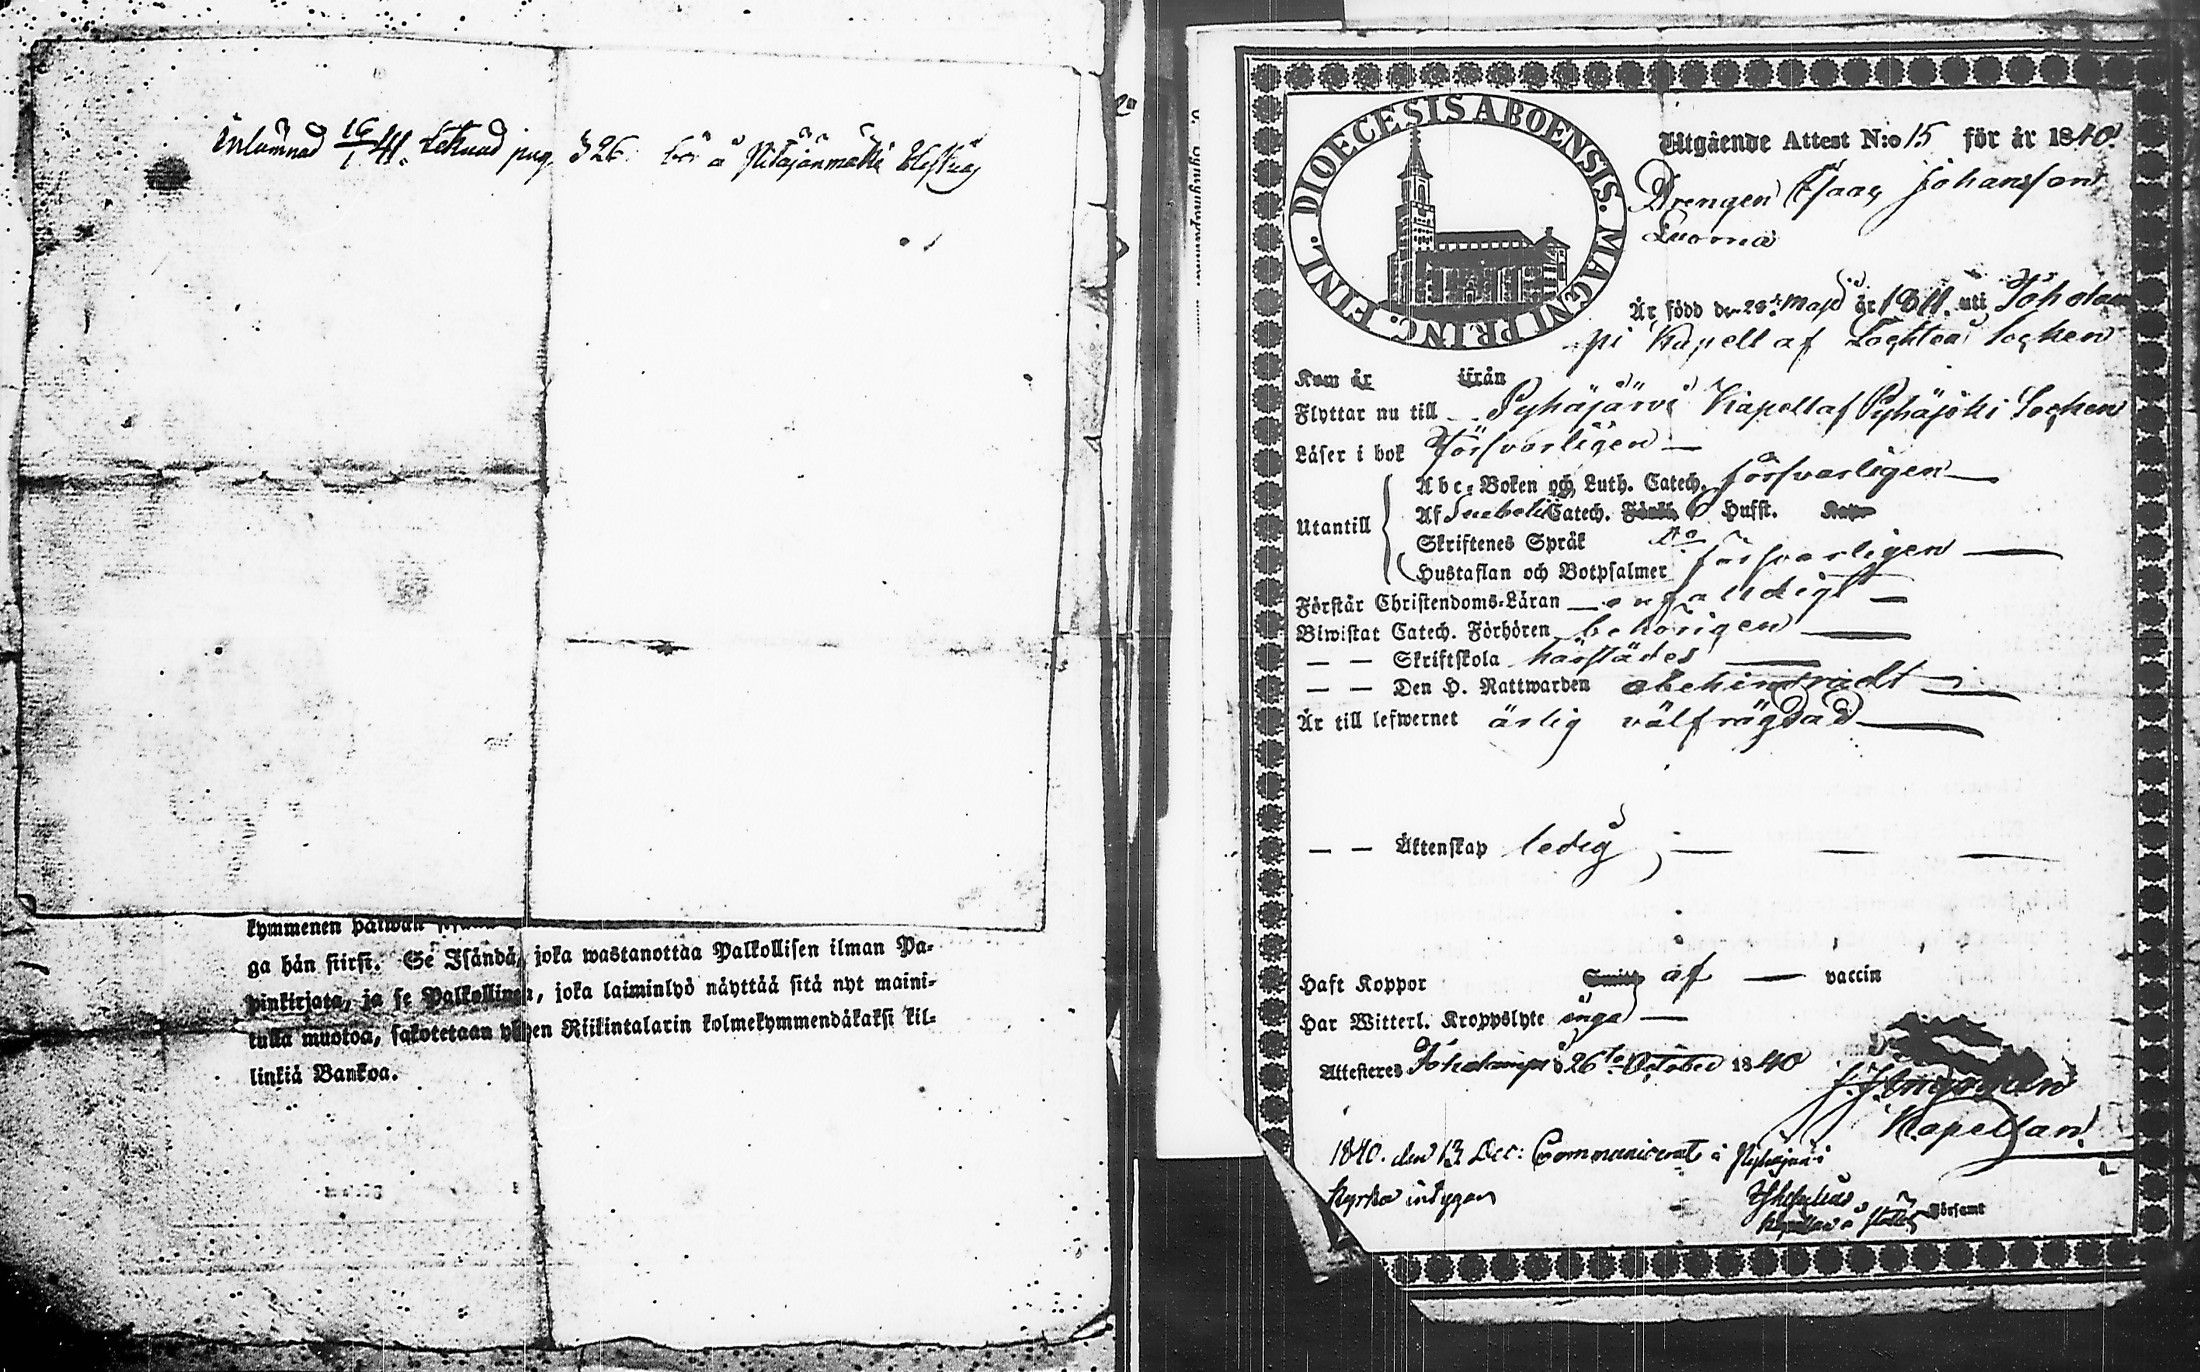 Inlämnad 16/1 41. teknad pag. 326. bor å Pitäjänmäki
kymmenen päiwän
ga hän siirsi. Se Isändä, joka wastanottaa Palkollisen ilman Pa-
pinkirjata, ja se Palkollinen, joka laiminlyö näyttää sitä nyt maini-
tulla muotoa, sakotetaan yhden Riikintalarin kolmekymmendäkaksi kil-
linkiä Bankoa.
DIOECESIS ABOENSIS. MAGNI PRINC. FINL.
Utgående Attest N:o 15 för år 1840.
Drengen Isaac Johansson
Luoma
Är född den 28:de Maji år 1811. uti Toholam
pi Kapell af Lochteå Sochen
Kom år ifrån
Flyttar nu till Pyhäjärvi Kapell af Pyhäjoki Sochen
Läser i bok Försvarligen —
Utantill
Abc-Boken och Luth. Catech. försvarligen —
Af Svebelii Catech. Hufst.
Skriftenes Språk D:o
Hustaflan och Botpsalmer försvarligen —
Förstår Christendoms-Läran — enfaldigt —
Biwistat Catech. Förhören behörigen —
— — Skriftskola härstädes —
— — Den H. Nattwarden obehindradt —
Är till lefwernet ärlig välfrägdad —
— — Äktenskap ledig, — — —
Haft Koppor af — vaccin
Har Witterl. Kroppslyte inga —
Attesteras Toholampi d 26:te October 1840
Kapellan.
1840. den 13 Dec: Communicerat i Pyhäjärvi
Kyrka intygar
Församt